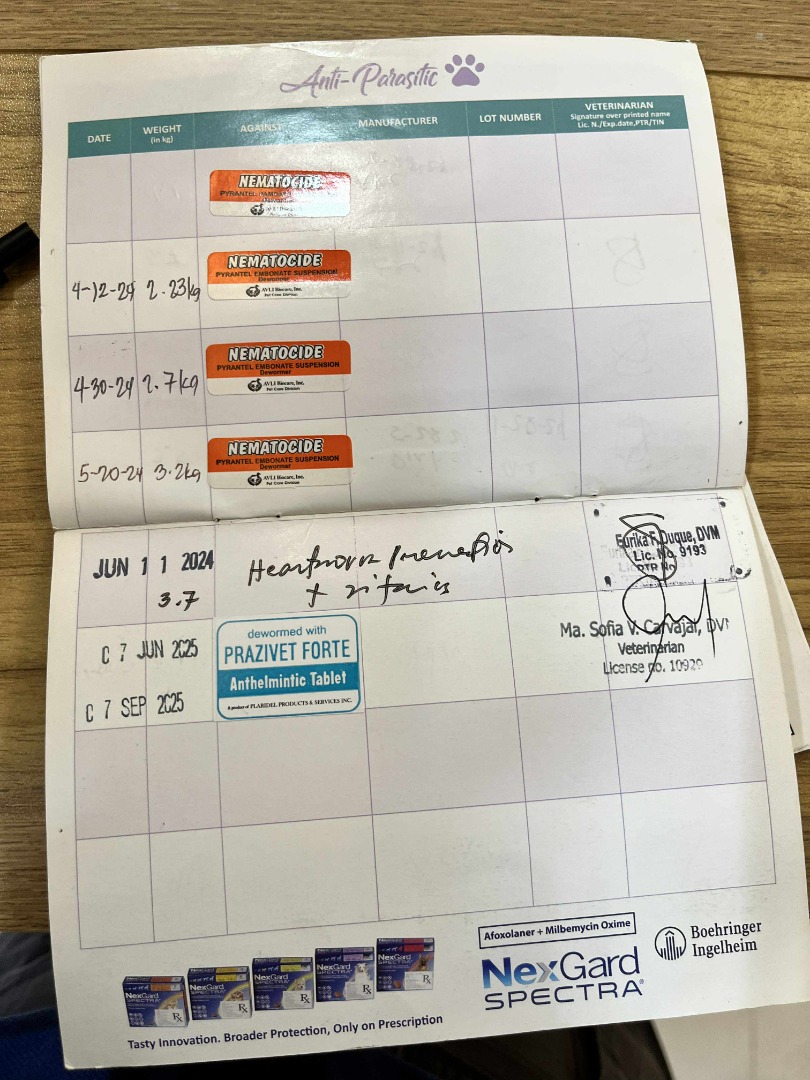 Anti-Parasitic
DATE
WEIGHT
(in kg)
AGAINST
MANUFACTURER
LOT NUMBER
VETERINARIAN
Signature over printed name
Lic. N./Exp.date,PTR/TIN
NEMATOCIDE
PYRANTEL
4-12-24 2.23kg
NEMATOCIDE
PYRANTEL EMBONATE SUSPENSION
Dewormer
AVLI Biocare, Inc.
Pet Care Division
4-30-24 2.7kg
NEMATOCIDE
PYRANTEL EMBONATE SUSPENSION
Dewormer
AVLI Biocare, Inc.
Pet Care Division
5-20-24 3.2kg
NEMATOCIDE
PYRANTEL EMBONATE SUSPENSION
Dewormer
AVLI Biocare, Inc.
Pet Care Division
JUN 1 1 2024
3.7
Heartworm
+
Eurika F. Duque, DVM
Lic. No. 9193
PTR No
0 7 JUN 2025
0 7 SEP 2025
dewormed with
PRAZIVET FORTE
Anthelmintic Tablet
A product of PLARIDEL PRODUCTS & SERVICES INC.
Ma. Sofia V. Carvajal, DV
Veterinarian
License no. 10929
NexGard
SPECTRA
NexGard
SPECTRA
NexGard
SPECTRA
NexGard
SPECTRA
NexGard
SPECTRA
Tasty Innovation. Broader Protection, Only on Prescription
Afoxolaner + Milbemycin Oxime
NexGard
SPECTRA®
Boehringer
Ingelheim